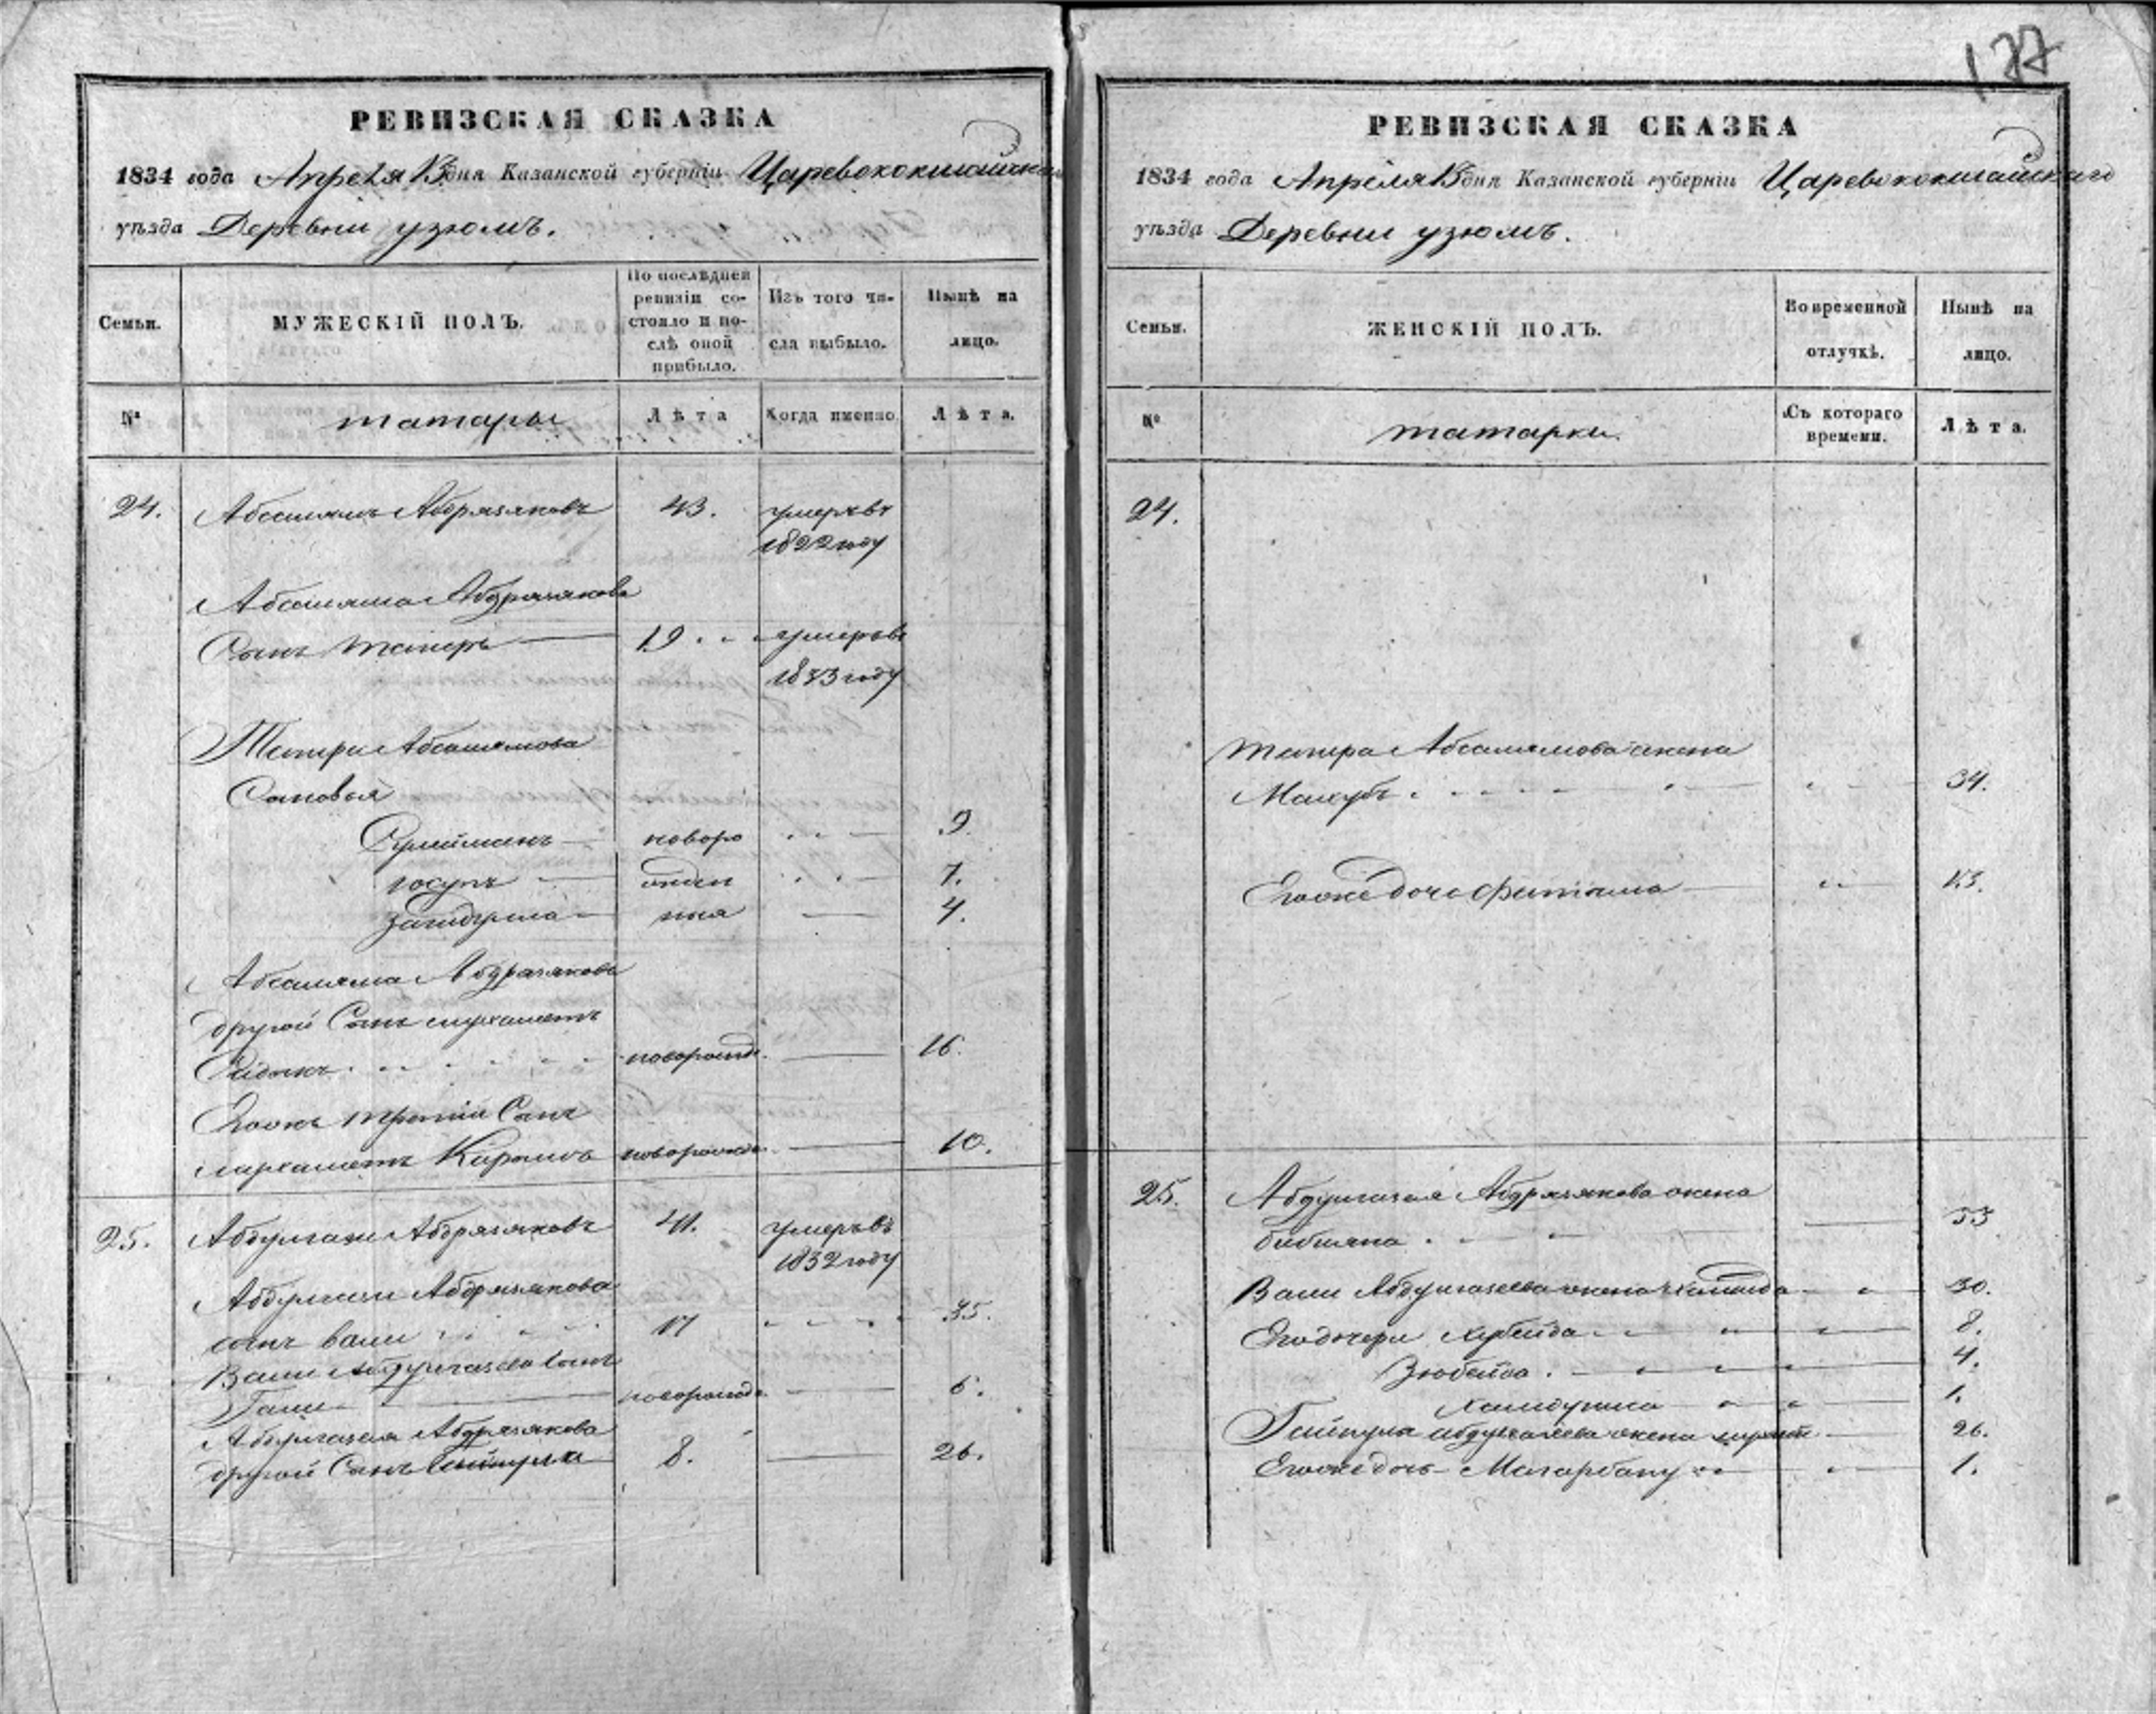 177
РЕВИЗСКАЯ СКАЗКА
1834 года Апреля 13 дня Казанской губерніи Царевококшайска
уѣзда Деревни узюмъ.
Семьи.
МУЖЕСКІЙ ПОЛЪ.
По послѣдней ревизіи состояло и послѣ оной прибыло.
Изъ того числа выбыло.
Нынѣ на лицо.
№
татары
Лѣта
Когда именно
Лѣта.
24. Абсалямъ Абдрязяковъ 43. умеръ въ
1822 году
Абсаляма Абдрязякова
Сынъ Темеръ 19. умеръ въ
1833 году
Темера Абсалямова
Сыновья
Сулейманъ новоро 9.
юсупъ жден 7.
Загидулла ныя 4.
Абсаляма Абдрязякова
другой Сынъ мухаметъ
Садыкъ новорожд. 16.
Ево жъ третий Сынъ
мухаметъ Каримъ новорожде. 10.
25. Абдулгази Абдрязяковъ 41. умеръ въ
1832 году
Абдулгази Абдрязякова
сынъ вали 17 35.
Вали Абдулгазеева Сынъ
Гали новорожде. 6.
Абдулгазея Абдрязякова
другой Сынъ 8. 26.
РЕВИЗСКАЯ СКАЗКА
1834 года Апреля 13 дня Казанской губерніи Царевококшайскаго
уѣзда Деревни узюмъ.
Семьи.
ЖЕНСКІЙ ПОЛЪ.
Во временной отлучкѣ.
Нынѣ на лицо.
№
татарки.
Съ котораго времени.
Лѣта.
24.
Темера Абсалямова жена
Махубъ 34.
Ево же дочь Фатима 13.
25. Абдулгазея Абдрязякова жена
бибиана 53
Вали Абдулгазеева жена Хамида 30.
Ево дочери Хубейда 8.
Зюбейда. 4.
1.
Гайнула абдулгазеева жена 26.
Ево же дочь Магарбану 1.